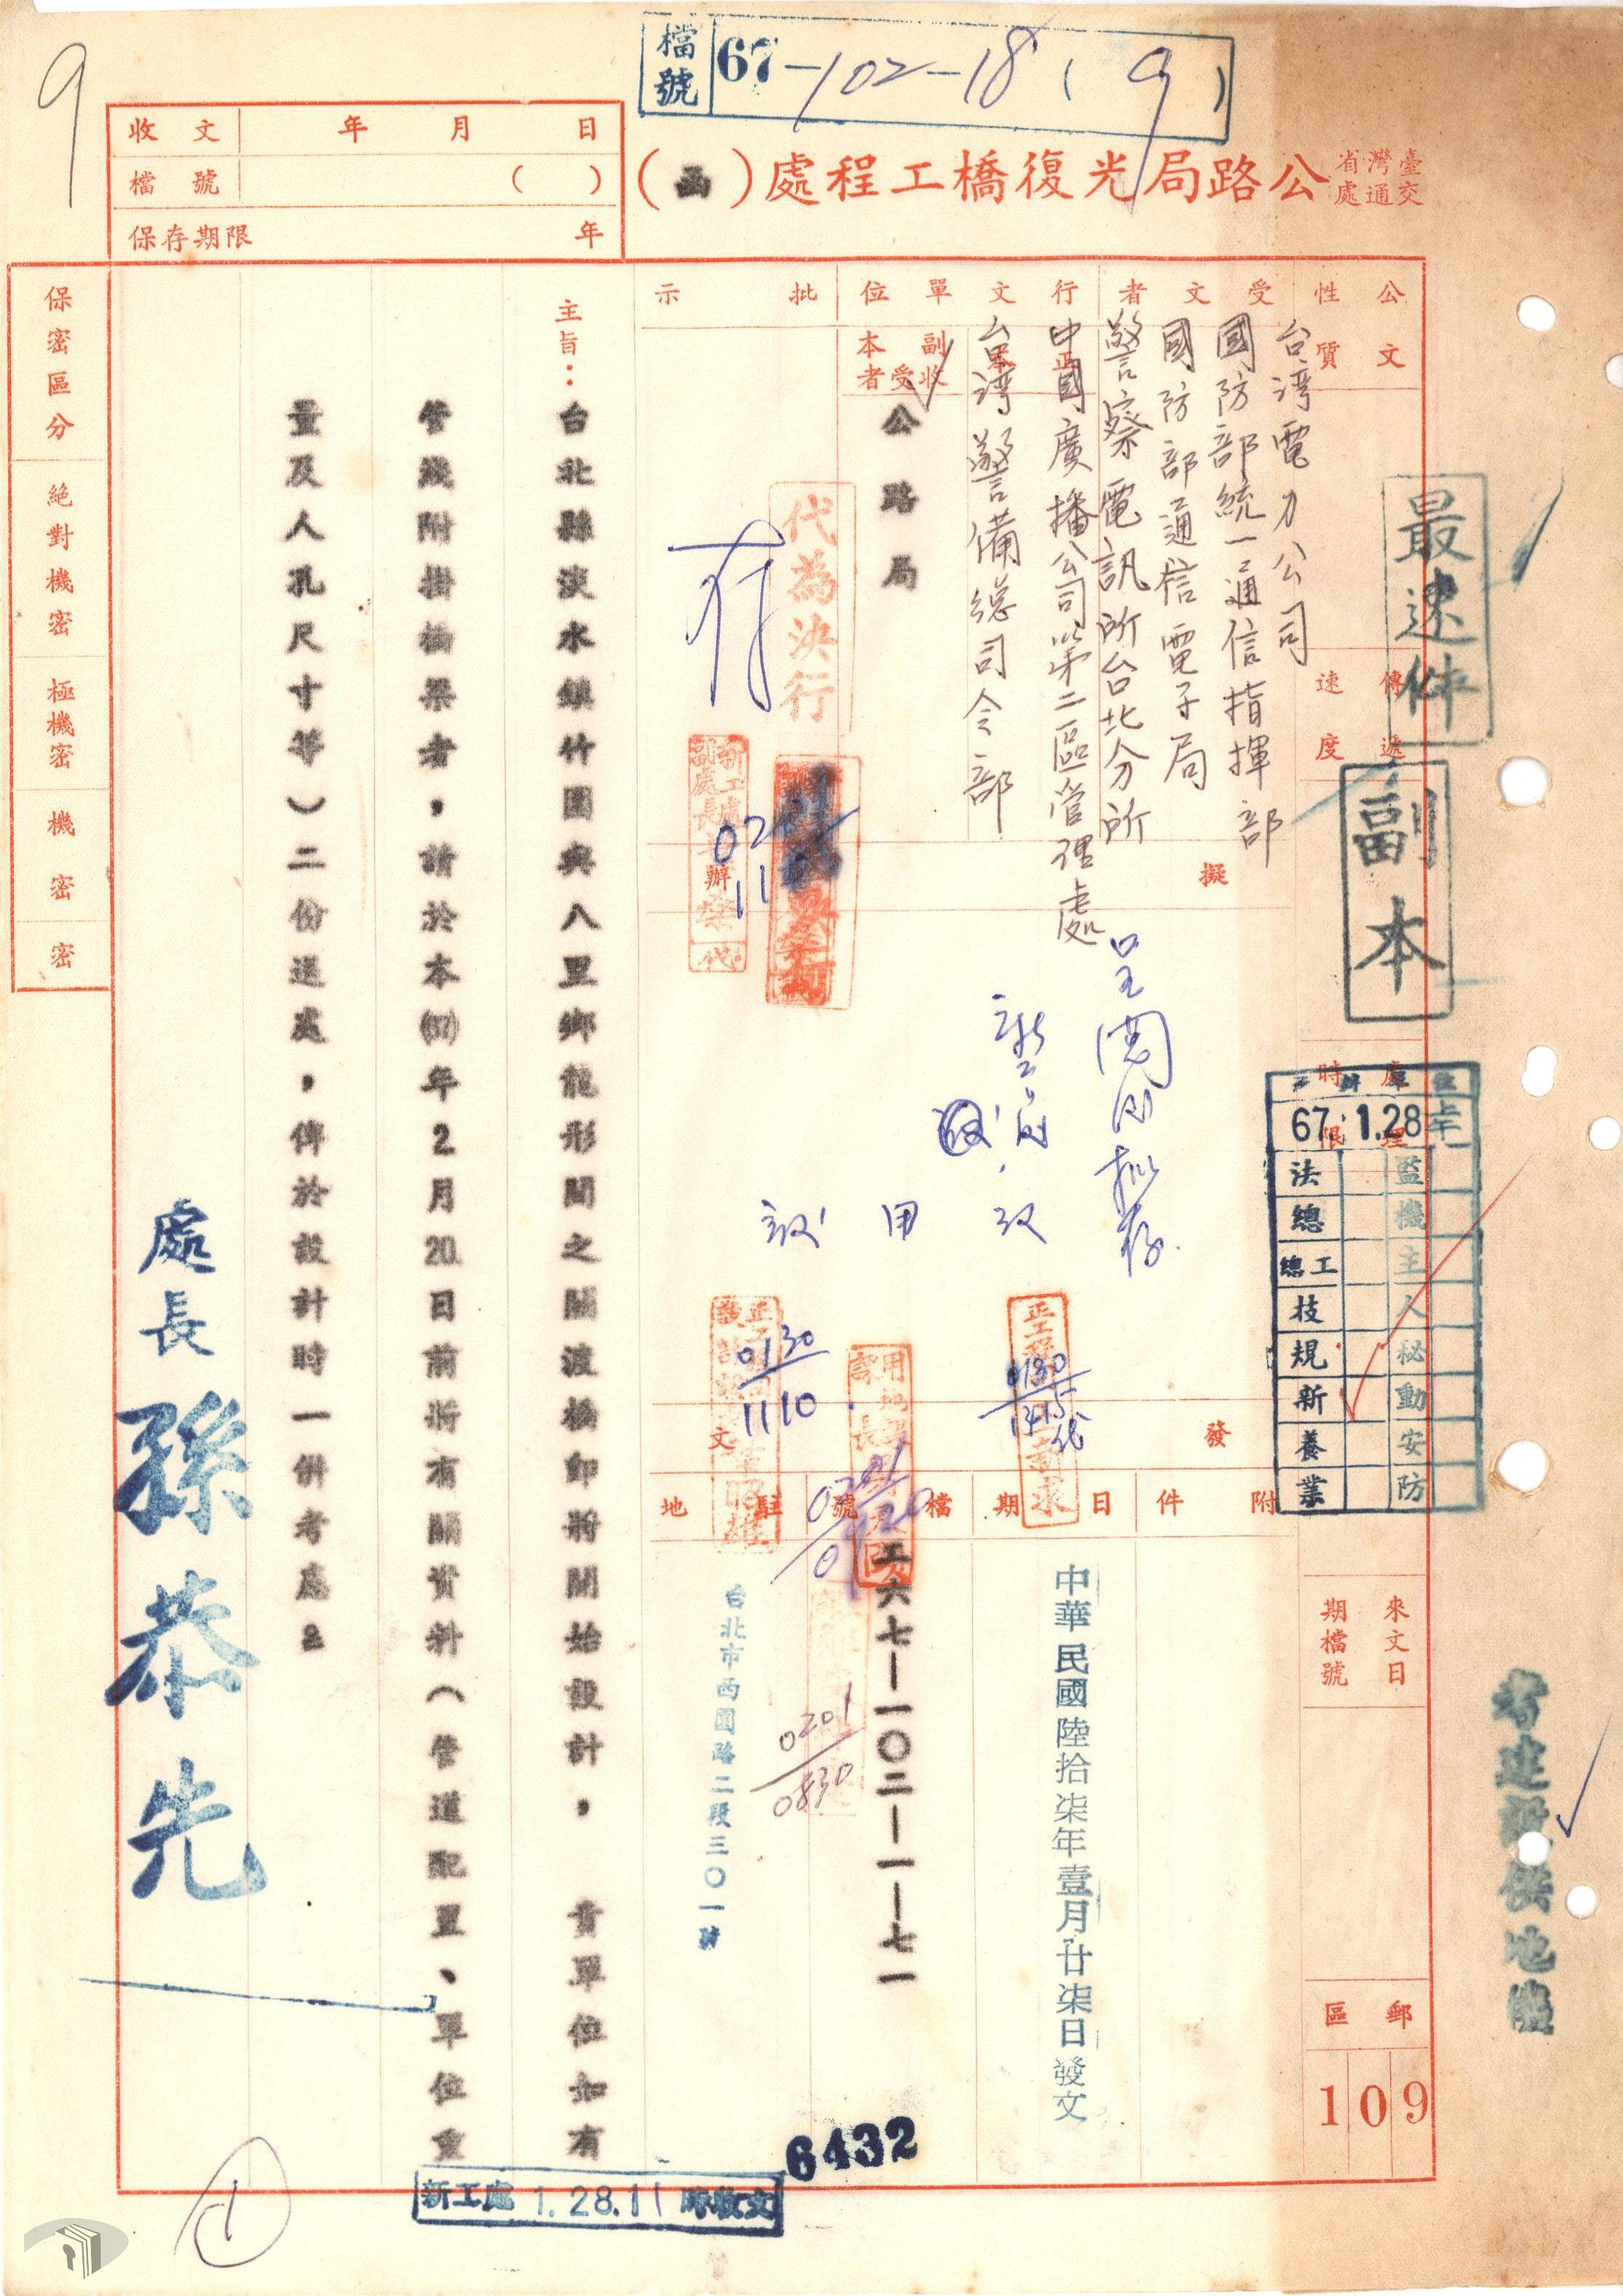 9
檔號 67-102-18(9)
收文 年 月 日
檔號 ( )
保存期限 年
臺灣省交通處公路局光復橋工程處(函)
保密區分
絕對機密
極機密
機密
密
公文性質
傳遞速度
處理時限
來文日期檔號
郵區
109
最速件
副本
受文者
行文單位
正本
副本收受者
批示
擬辦
發文
附件
日期
檔號
駐地
台湾電力公司
國防部統一通信指揮部
國防部通信電子局
警察電訊所台北分所
中國廣播公司第二區管理處
台湾警備總司令部
公路局
代為決行
存
呈閱后擬存
0130
1415代
0130
1110
0201
0830
中華民國陸拾柒年壹月廿柒日發文
工六七—一〇二—一—七一
台北市西園路二段三〇一號
主旨：台北縣淡水鎮竹圍與八里鄉龍形間之關渡橋即將開始設計，貴單位如有
管綫附掛橋梁者，請於本(67)年2月20.日前將有關資料（管道配置、單位重
量及人孔尺寸等）二份送處，俾於設計時一併考慮。
處長孫恭先
67. 1.28 上午
監
機
主
人
秘
動
安
防
法
總
總工
技
規
新
養
業
6432
新工處 1.28.11 時收文
1